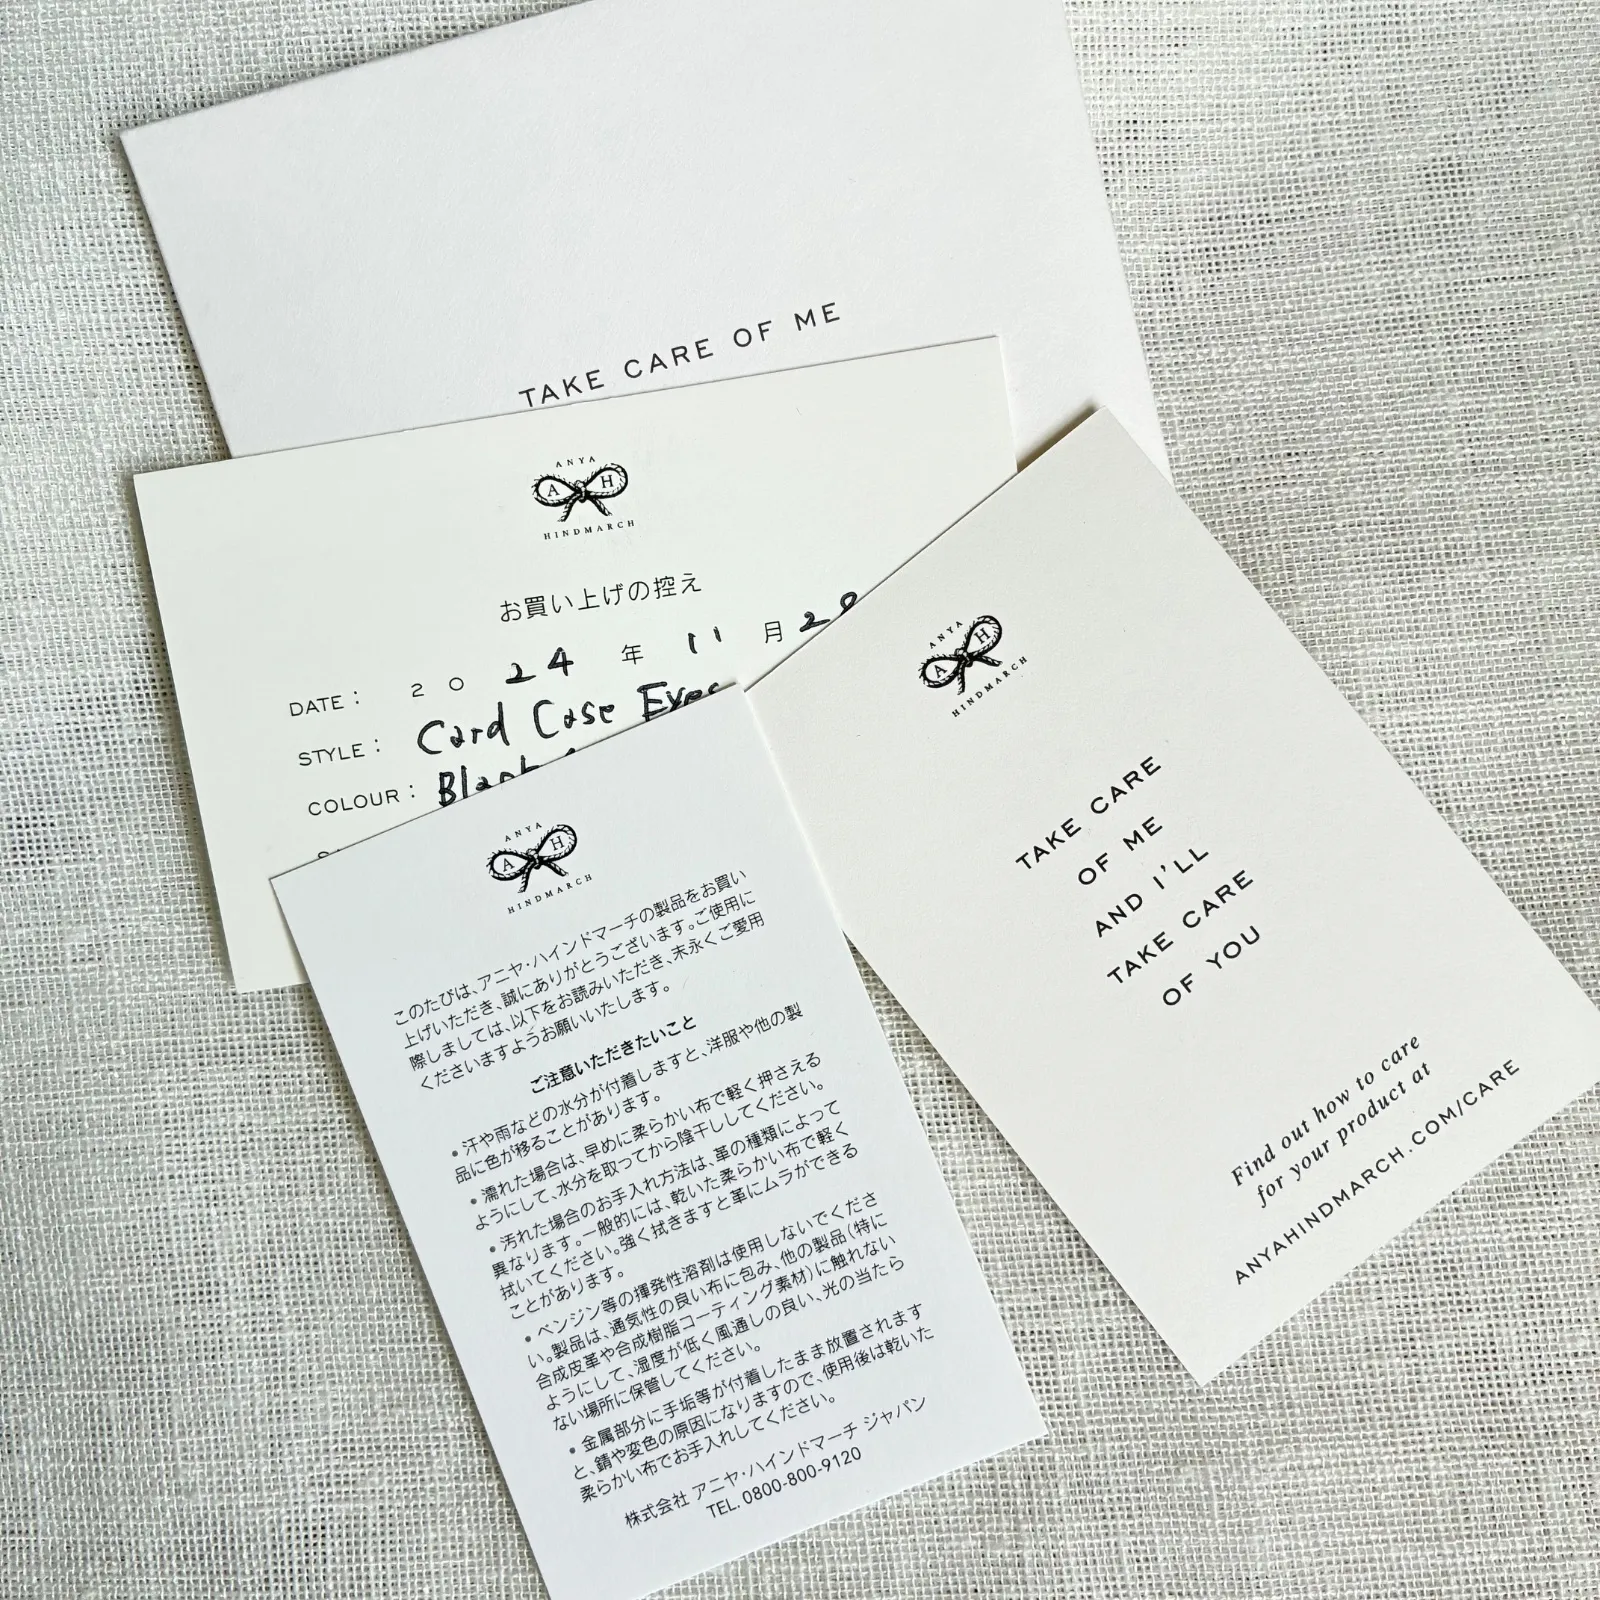 TAKE CARE OF ME
ANYA
A H
HINDMARCH
お買い上げの控え
DATE： 2 0 24 年 11 月
STYLE： Card Case Eyes
COLOUR：
ANYA
A H
HINDMARCH
このたびは、アニヤ・ハインドマーチの製品をお買い
上げいただき、誠にありがとうございます。ご使用に
際しましては、以下をお読みいただき、末永くご愛用
くださいますようお願いいたします。
ご注意いただきたいこと
• 汗や雨などの水分が付着しますと、洋服や他の製
品に色が移ることがあります。
• 濡れた場合は、早めに柔らかい布で軽く押さえる
ようにして、水分を取ってから陰干ししてください。
• 汚れた場合のお手入れ方法は、革の種類によって
異なります。一般的には、乾いた柔らかい布で軽く
拭いてください。強く拭きますと革にムラができる
ことがあります。
• ベンジン等の揮発性溶剤は使用しないでくださ
い。製品は、通気性の良い布に包み、他の製品（特に
合成皮革や合成樹脂コーティング素材）に触れない
ようにして、湿度が低く風通しの良い、光の当たら
ない場所に保管してください。
• 金属部分に手垢等が付着したまま放置されます
と、錆や変色の原因になりますので、使用後は乾いた
柔らかい布でお手入れしてください。
株式会社 アニヤ・ハインドマーチ ジャパン
TEL. 0800-800-9120
ANYA
A H
HINDMARCH
TAKE CARE
OF ME
AND I'LL
TAKE CARE
OF YOU
Find out how to care
for your product at
ANYAHINDMARCH.COM/CARE